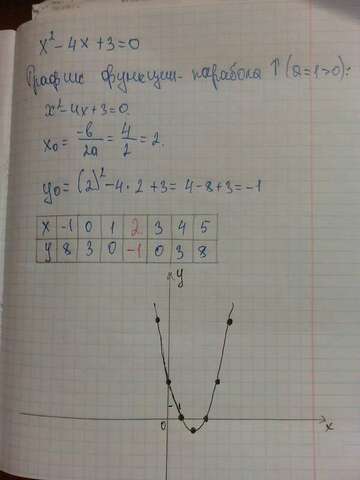 x² - 4x + 3 = 0
График функции - парабола ↑ (a = 1 > 0):
x² - 4x + 3 = 0.
x₀ = -b/2a = 4/2 = 2.
y₀ = (2)² - 4 · 2 + 3 = 4 - 8 + 3 = -1
x -1 0 1 2 3 4 5
y 8 3 0 -1 0 3 8
y
1
0 x